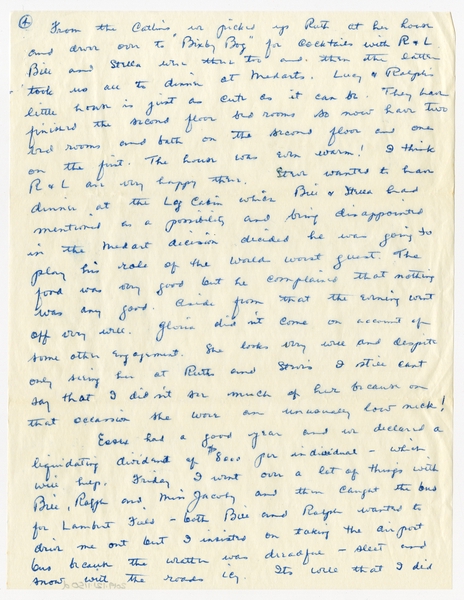 4
From the Catlins' we picked up Ruth at her house
and drove over to "Bixby Bog" for cocktails with R & L.
Bill and Stella were there too and then the latter
took us all to dinner at Medarts. Lucy & Ralph's
little house is just as cute as it can be. They have
finished the second floor bed rooms so now have two
bed rooms and bath on the second floor and one
on the first. The house was even warm! I think
R & L are very happy there. Steve wanted to have
dinner at the Log Cabin which Bill & Stella had
mentioned as a possibility and being disappointed
in the Medart decision decided he was going to
play his role of the world worst guest. The
food was very good but he complained that nothing
was any good. Aside from that the evening went
off very well. Gloria didn't come on account of
some other engagement. She looks very well and despite
only seeing her at Ruth's and I still can't
say that I didn't see much of her because on
that occasion she wore an unusually low neck!
Essex had a good year and we declared a
liquidating dividend of $800 per individual - which
will help. Friday I went over a lot of things with
Bill, Ralph and Miss Jacoby and then caught the bus
for Lambert Field - both Bill and Ralph wanted to
drive me out but I insisted on taking the airport
bus because the weather was dreadful - sleet and
snow with the roads icy. Its well that I did